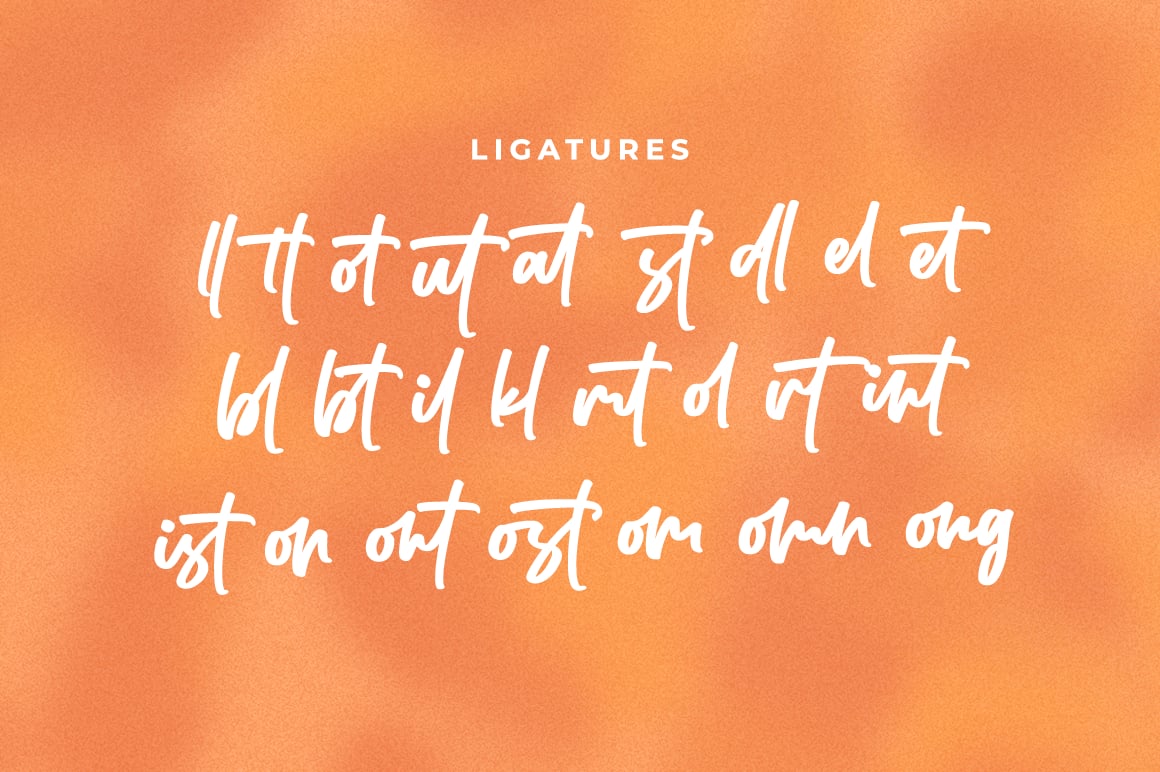 LIGATURES
ll tt ot ut at st dl el et
bl bt il kl nt ol rt int
ist on ont ost om omn ong